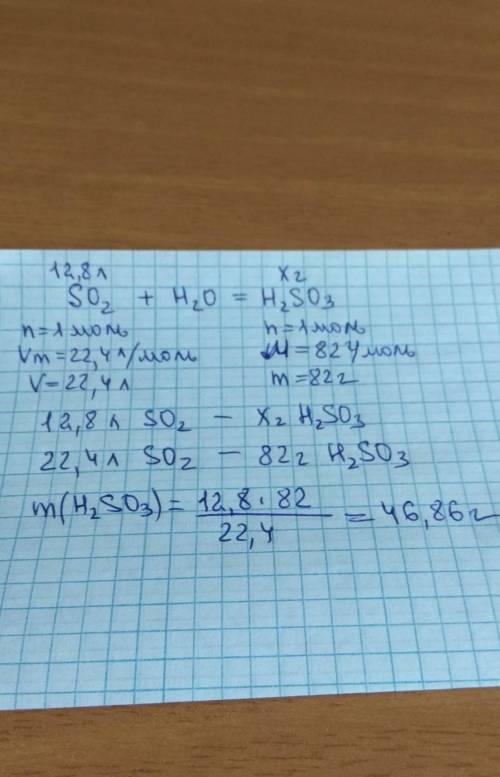 12,8л xг
SO₂ + H₂O = H₂SO₃
n=1моль n=1моль
Vm=22,4л/моль M=82г/моль
V=22,4л m=82г
12,8л SO₂ – xг H₂SO₃
22,4л SO₂ – 82г H₂SO₃
m(H₂SO₃) = 12,8·82 / 22,4 = 46,86г